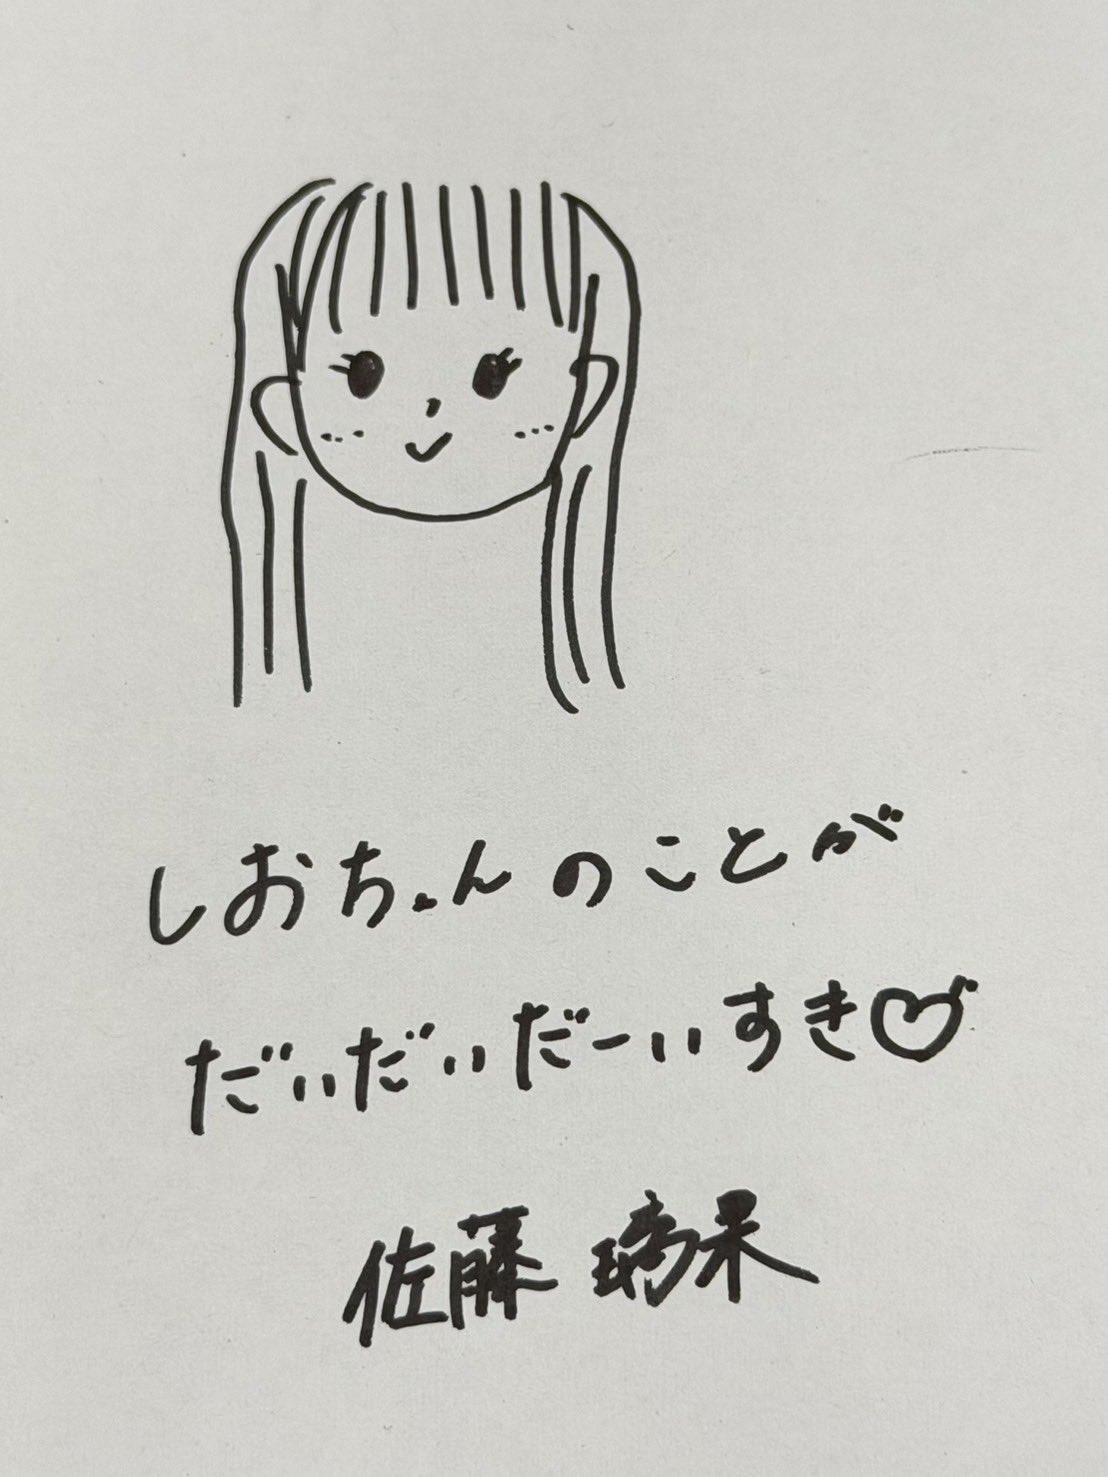 しおちゃんのことが
だいだいだーいすき♡
佐藤 璃果